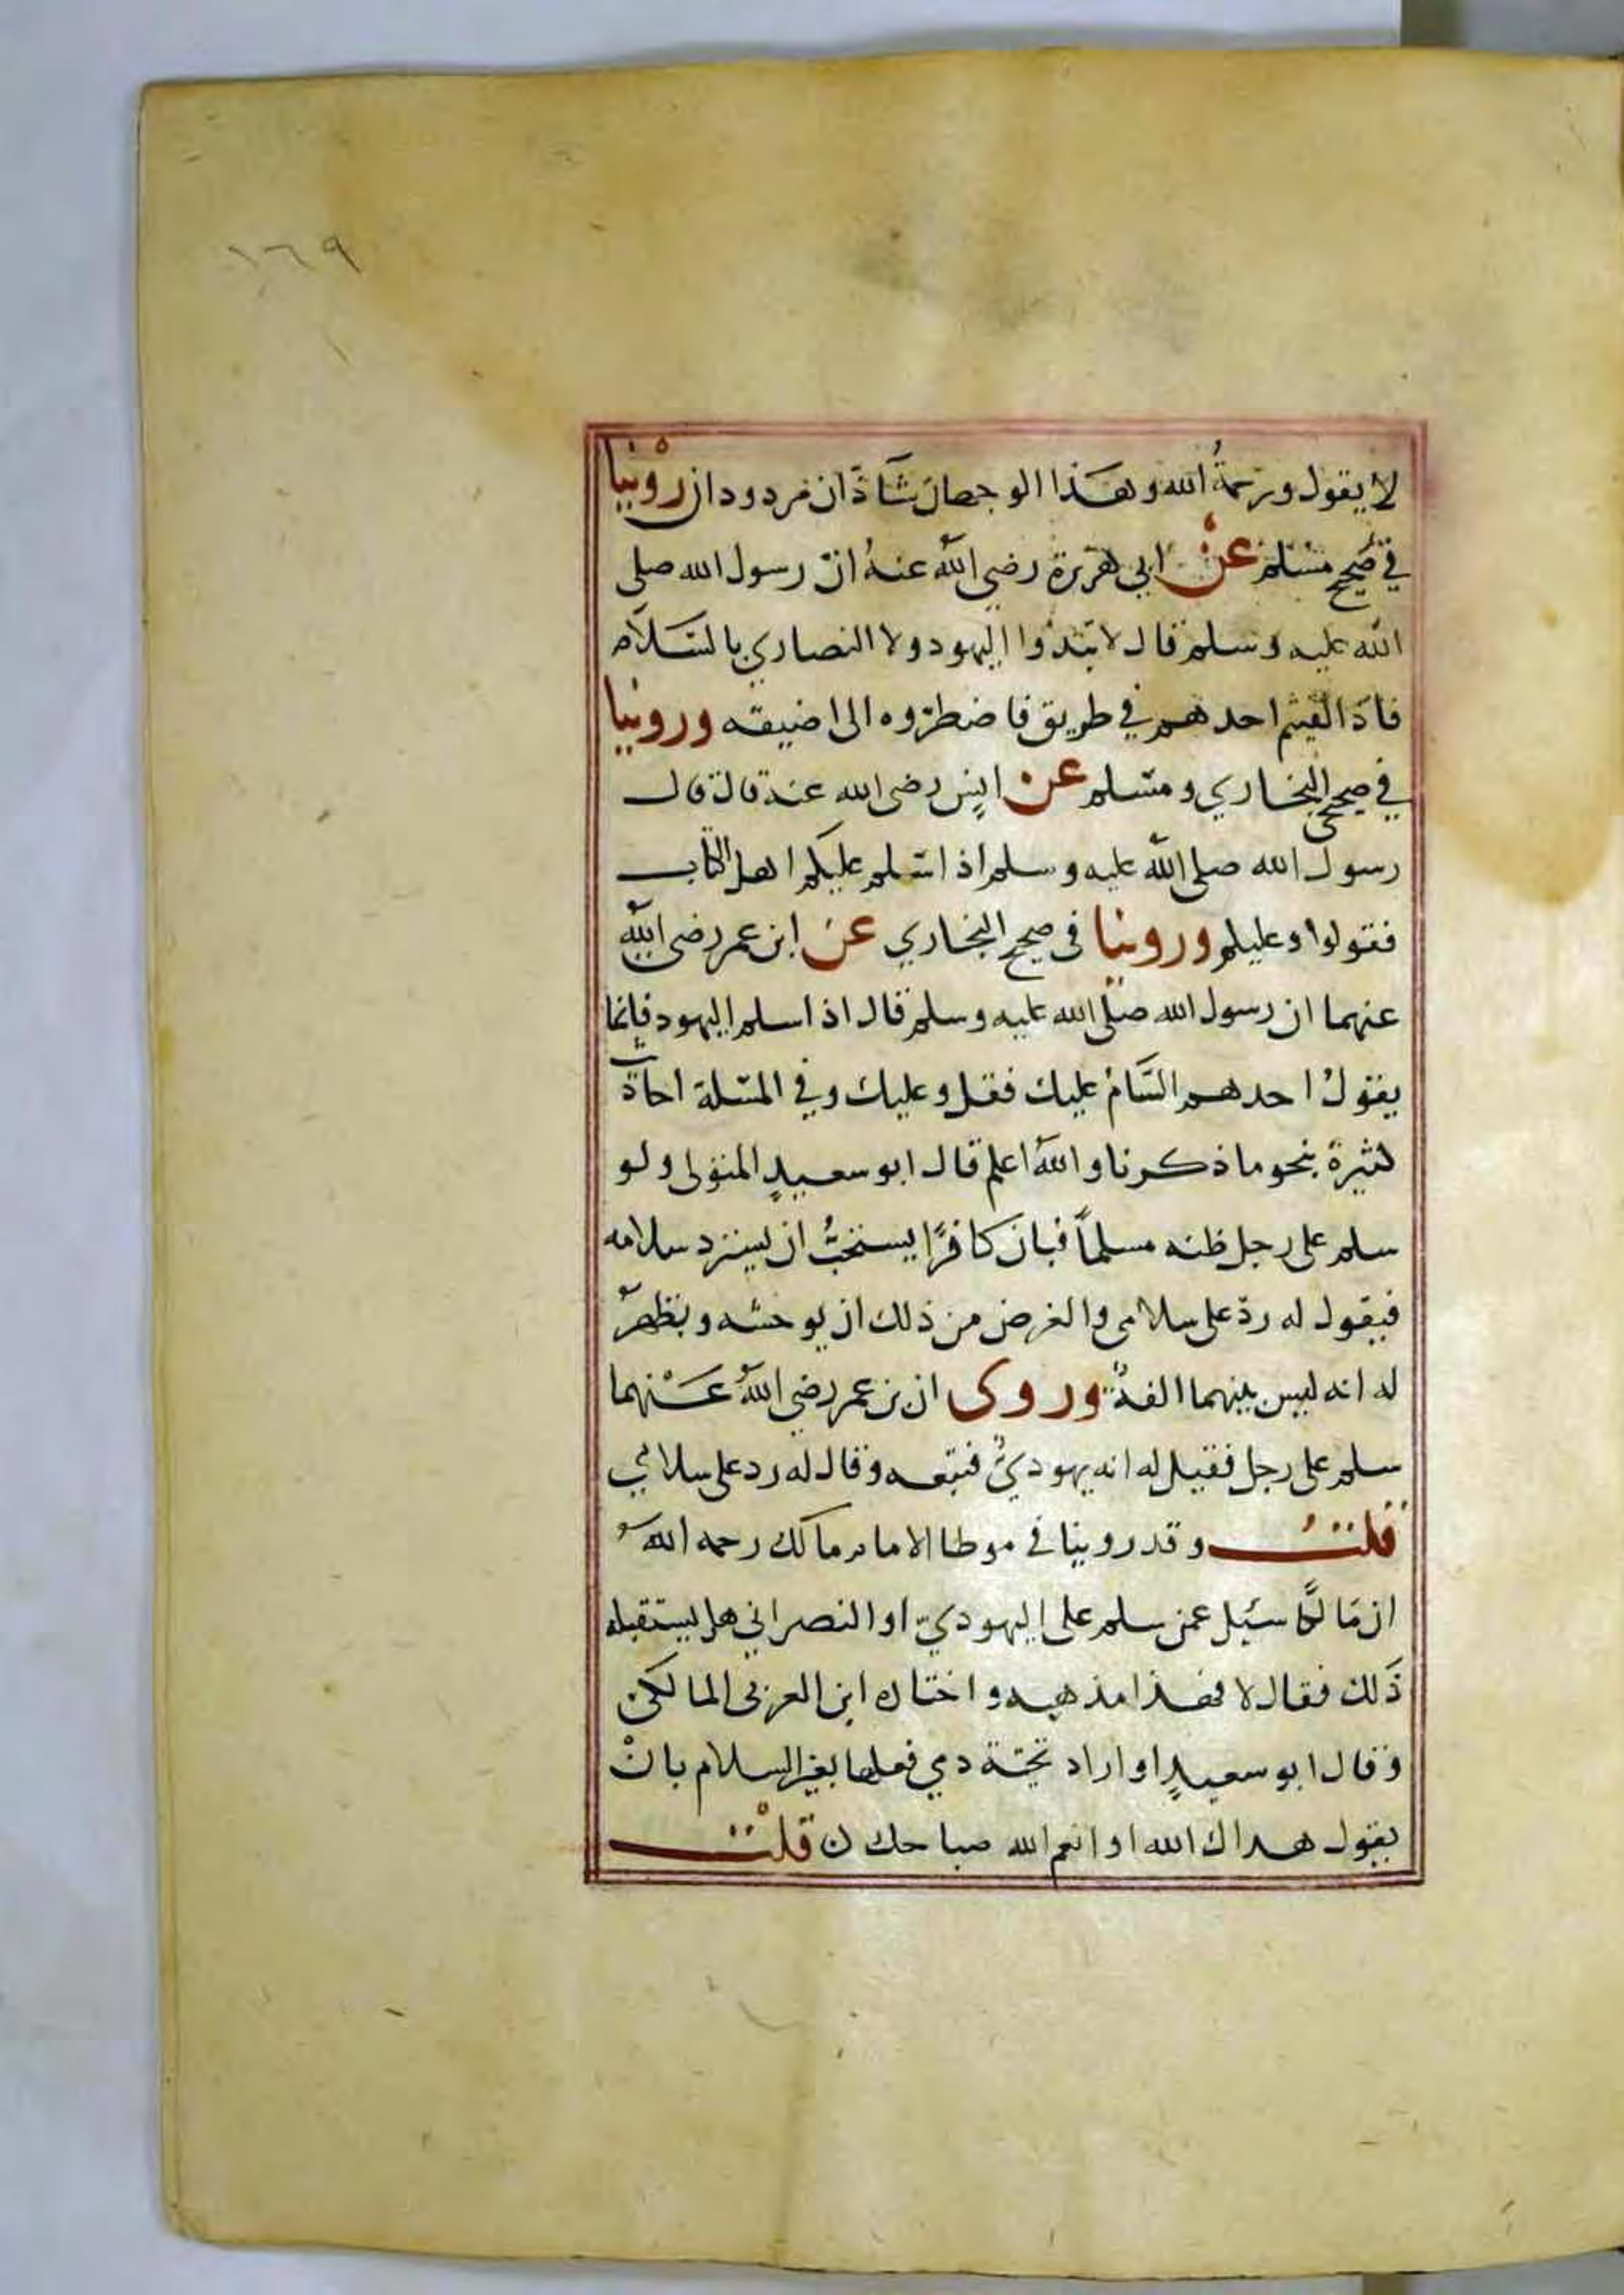 ١٦٩
لا يقول ورحمةُ الله وهذا الوجهان شاذان مردودان روينا
في صحيح مسلم عن ابي هريرة رضي الله عنهُ انّ رسول الله صلى
الله عليه وسلم قال لا تبتدؤا اليهود ولا النصاري بالسّلام
فاذا لقيتم احدهم في طريق فاضطرّوه الى اضيقه وروينا
في صحيحي البخاري ومسلم عن انس رضي الله عنه قال قال
رسول الله صلى الله عليه وسلم اذا سلم عليكم اهل الكتاب
فقولوا وعليكم وروينا في صحيح البخاري عن ابن عمر رضي الله
عنهما ان رسول الله صلى الله عليه وسلم قال اذا سلم اليهود فانما
يقولُ احدهم السّامُ عليك فقل وعليك وفي المسئلة احاديث
كثيرة بنحو ما ذكرنا والله اعلم قال ابو سعيدٍ المتولى ولو
سلم على رجل ظنه مسلماً فبان كافرًا يستحبُّ ان يسترد سلامه
فيقول له ردّ على سلامى والغرض من ذلك ان يوحشه ويظهر
له انه ليس بينهما الفة وروى ان بن عمر رضي اللهُ عنهما
سلم على رجل فقيل له انه يهوديٌ فتبعه وقال له رد على سلامي
قلت وقد روينا في موطا الامام مالك رحمه الله
ان مالكًا سئل عمن سلم على اليهوديّ او النصراني هل يستقيله
ذلك فقال لا فهذا مذهبه واختاره ابن العربى المالكى
وقال ابو سعيدٍ لو اراد تحيّة ذمي فعلها بغير السلام بانْ
يقول هداك الله او انعم الله صباحك ن قلتُ